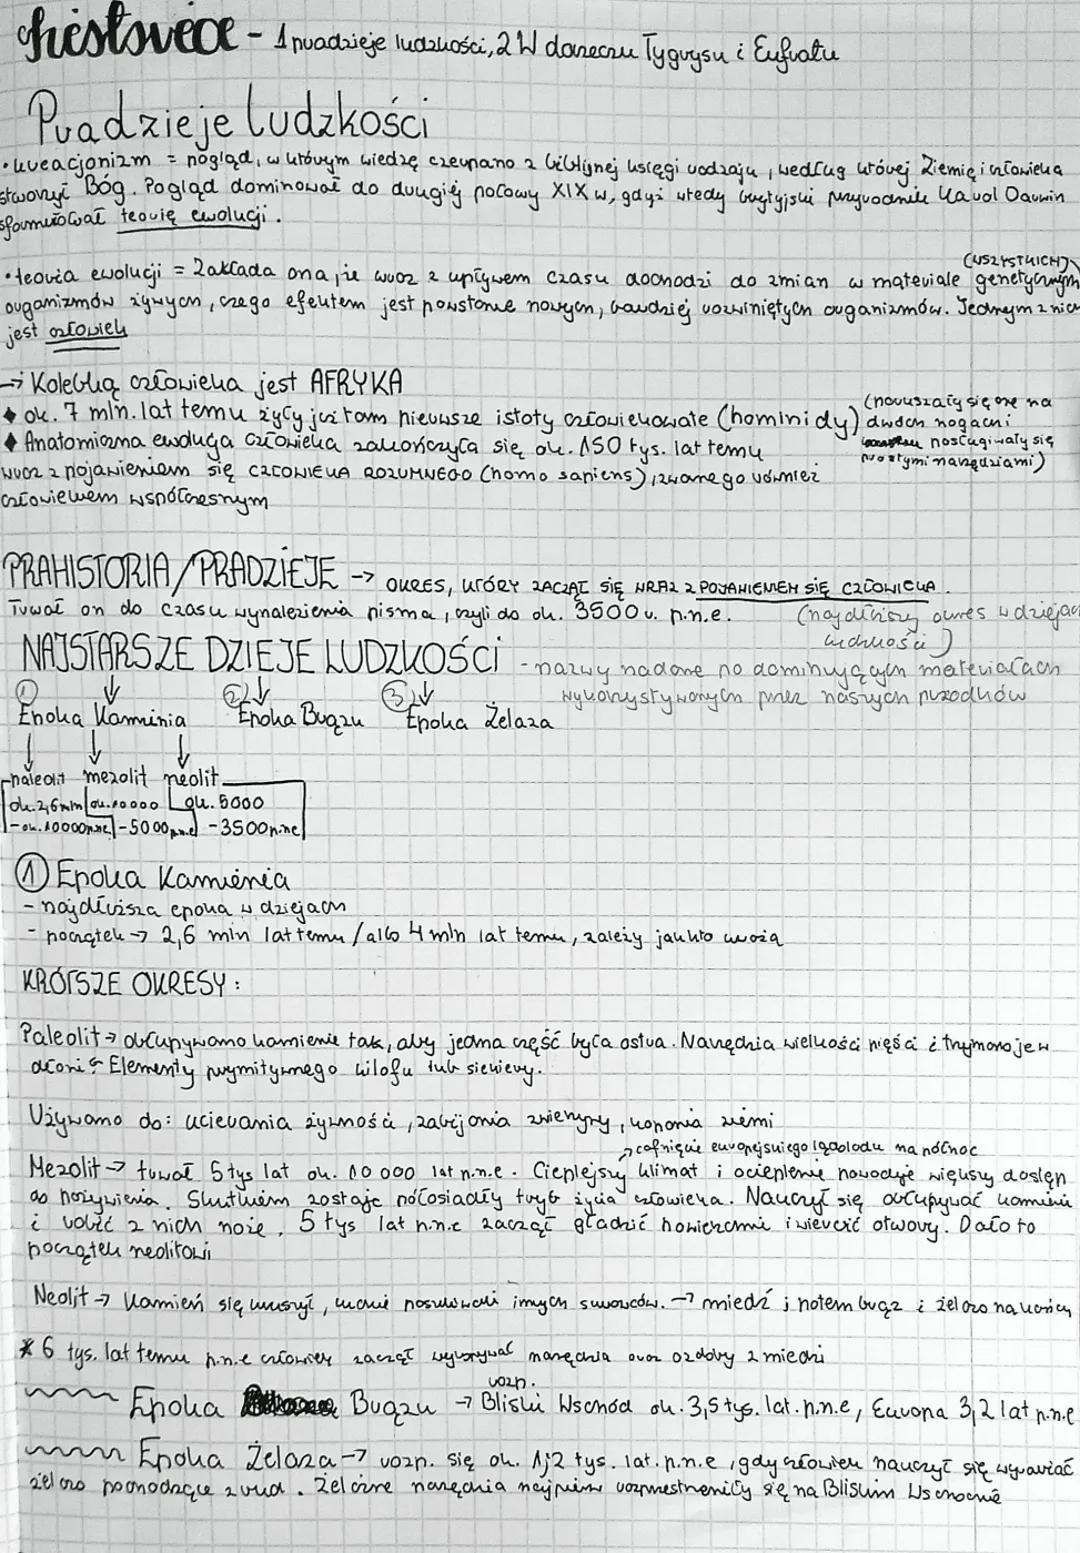 historia - 1 pradzieje ludzkości, 2 W dorzeczu Tygrysu i Eufratu
Pradzieje ludzkości
• kreacjonizm = pogląd, w którym wiedzę czerpano z biblijnej księgi rodzaju, według której Ziemię i człowieka
stworzył Bóg. Pogląd dominował do drugiej połowy XIX w, gdyż wtedy brytyjski przyrodnik Karol Darwin
sformułował teorię ewolucji.
(WSZYSTKICH)
• teoria ewolucji = Zakłada ona, że wraz z upływem czasu dochodzi do zmian w materiale genetycznym
organizmów żywych, czego efektem jest powstanie nowych, bardziej rozwiniętych organizmów. Jednym z nich
jest człowiek
→ Kolebką człowieka jest AFRYKA
♦ ok. 7 mln. lat temu żyły już tam pierwsze istoty człowiekowate (hominidy) (poruszały się one na dwóch nogach i
♦ Anatomiczna ewolucja człowieka zakończyła się ok. 150 tys. lat temu posługiwały się prostymi narzędziami)
wraz z pojawieniem się CZŁOWIEKA ROZUMNEGO (homo sapiens), zwanego również
człowiekiem współczesnym
PRAHISTORIA/PRADZIEJE → OKRES, KTÓRY ZACZĄŁ SIĘ WRAZ Z POJAWIENIEM SIĘ CZŁOWIEKA.
Trwał on do czasu wynalezienia pisma, czyli do ok. 3500 r. p.n.e. (najdłuższy okres w dziejach
ludzkości)
NAJSTARSZE DZIEJE LUDZKOŚCI - nazwy nadane po dominujących materiałach
wykorzystywanych przez naszych przodków
① ↓ ② ↓ ③ ↓
Epoka Kamienia Epoka Brązu Epoka Żelaza
↓ ↓ ↓
paleolit mezolit neolit
ok. 2,6 mln ok. 10000 ok. 5000
- ok. 10000 p.n.e - 5000 p.n.e - 3500 p.n.e
① Epoka Kamienia
- najdłuższa epoka w dziejach
- początek → 2,6 mln lat temu / albo 4 mln lat temu, zależy jak kto uważa
KRÓTSZE OKRESY:
Paleolit → obłupywano kamienie tak, aby jedna część była ostra. Narzędzia wielkości pięści i trzymano je w
dłoni Elementy prymitywnego kilofu lub siekiery.
Używano do: ucierania żywności, zabijania zwierzyny, kopania ziemi
→ cofnięcie europejskiego lądolodu na północ
Mezolit → trwał 5 tys lat ok. 10 000 lat p.n.e. Cieplejszy klimat i ocieplenie powoduje większy dostęp
do pożywienia. Skutkiem zostaje półosiadły tryb życia człowieka. Nauczył się obłupywać kamienie
i robić z nich noże. 5 tys lat p.n.e zaczął gładzić powierzchnie i wiercić otwory. Dało to
początek neolitowi
Neolit → Kamień się kruszył, ludzie poszukiwali innych surowców. → miedź i potem brąz i żelazo na końcu
* 6 tys. lat temu p.n.e człowiek zaczął wykonywać narzędzia oraz ozdoby z miedzi
rozp.
Epoka Brązu → Bliski Wschód ok. 3,5 tys. lat. p.n.e, Europa 3,2 lat p.n.e
Epoka Żelaza → rozp. się ok. 1,2 tys. lat. p.n.e, gdy człowiek nauczył się wytapiać
żelazo pochodzące z rud. Żelazne narzędzia najpierw rozprzestrzeniły się na Bliskim Wschodzie